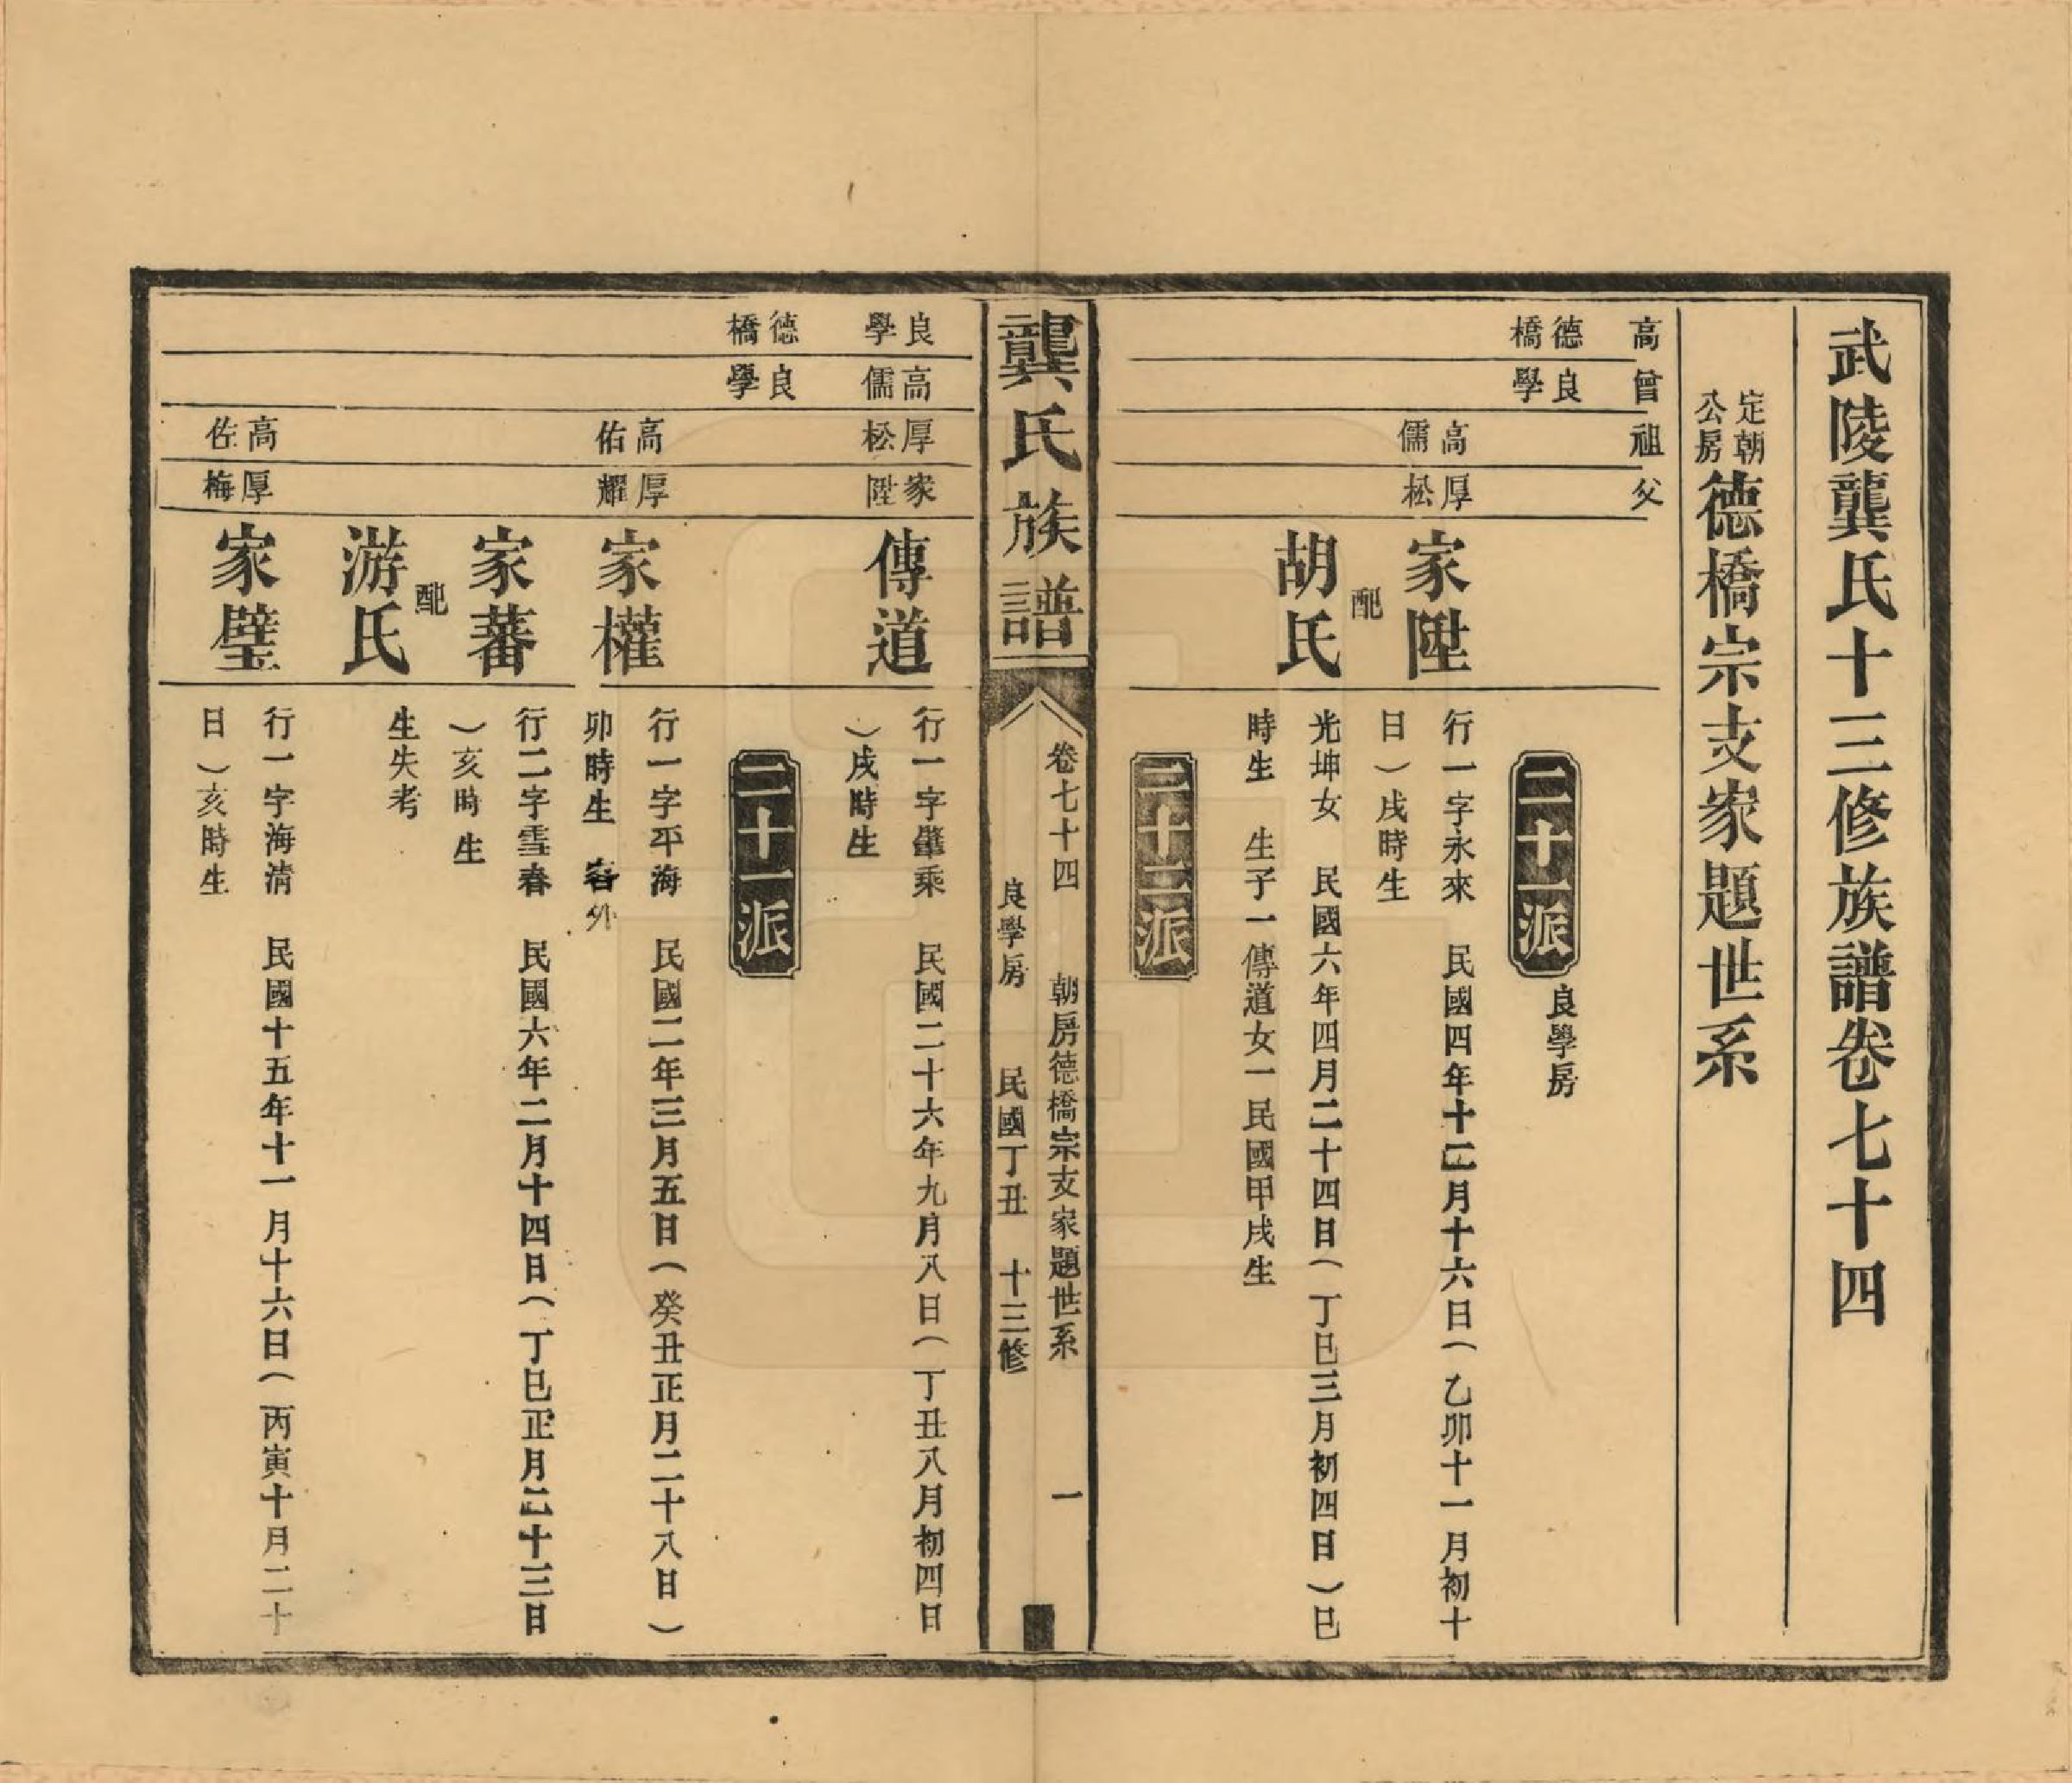 武陵龔氏十三修族譜卷七十四
定朝
公房
德橋宗支家題世系
高
曾
祖
父
德橋
良學
二十一派
良學房
高儒
厚松
家陞
行一字永來　民國四年十二月十六日（乙卯十一月初十
日）戌時生
配
胡氏
光坤女　民國六年四月二十四日（丁巳三月初四日）巳
時生　生子一傳道女一民國甲戌生
二十二派
龔氏族譜
卷七十四　朝房德橋宗支家題世系　一
良學房　民國丁丑　十三修
良學
高儒
厚松
家陞
傳道
行一字肇乘　民國二十六年九月八日（丁丑八月初四日
）戌時生
德橋
良學
二十一派
高佑
厚耀
家權
行一字平海　民國二年三月五日（癸丑正月二十八日）
卯時生　客外
家蕃
行二字雪春　民國六年二月十四日（丁巳正月二十三日
）亥時生
配
游氏
生失考
高佐
厚梅
家璧
行一字海清　民國十五年十一月十六日（丙寅十月二十
日）亥時生